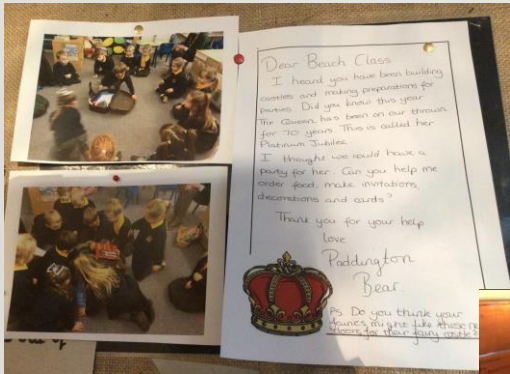 Dear Beach Class
I heard you have been building
castles and making preparations for
parties. Did you know this year
The Queen has been on our throne
for 70 years. This is called her
Platinum Jubilee
I thought we could have a
party for her. Can you help me
order food, make invitations,
decorations and cards?
Thank you for your help
love
Paddington
Bear.
Ps. Do you think your
fairies might like these
for their fairy castle